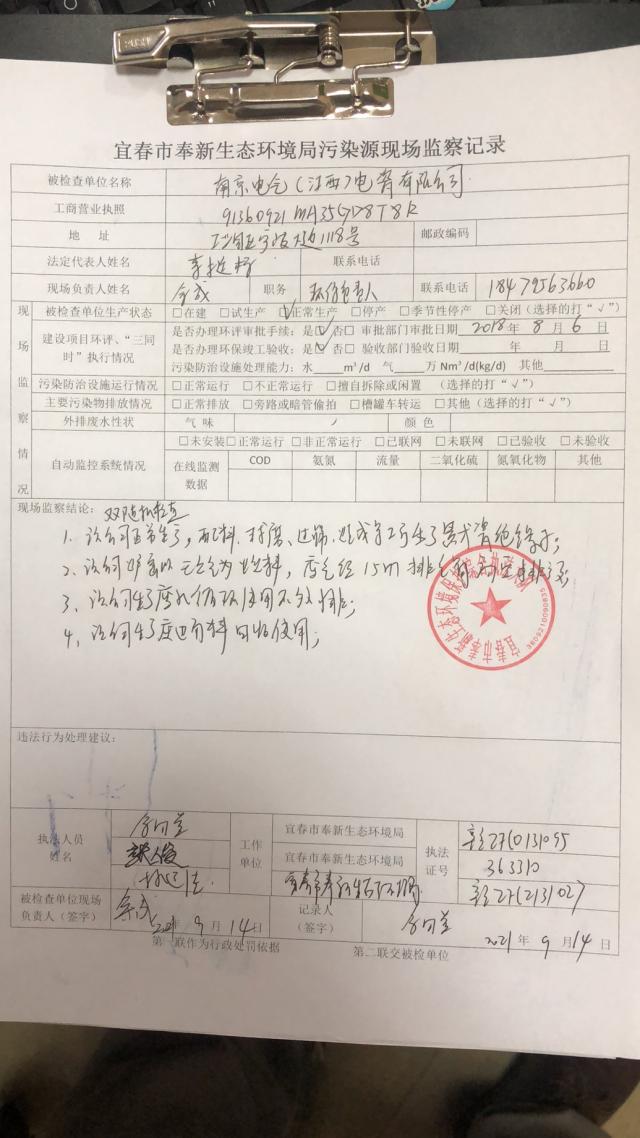 宜春市奉新生态环境局污染源现场监察记录
被检查单位名称 南京电气（江西）电瓷有限公司
工商营业执照 91360921MA35G7D8T8R
地 址 1118号 邮政编码
法定代表人姓名 联系电话
现场负责人姓名 职务 环保负责人 联系电话 18479563660
现场监察情况
被检查单位生产状态 □在建 □试生产 ☑正常生产 □停产 □季节性停产 □关闭（选择的打“√”）
建设项目环评、“三同时”执行情况
是否办理环评审批手续：是☑ 否□ 审批部门审批日期 2018年 8 月 6 日
是否办理环保竣工验收：是☑ 否□ 验收部门验收日期 年 月 日
污染防治设施处理能力：水 m³/d 气 万 Nm³/d(kg/d) 其他
污染防治设施运行情况 □正常运行 □不正常运行 □擅自拆除或闲置 （选择的打“√”）
主要污染物排放情况 □正常排放 □旁路或暗管偷拍 □槽罐车转运 □其他（选择的打“√”）
外排废水性状 气 味 / 颜 色
自动监控系统情况 □未安装 □正常运行 □非正常运行 □已联网 □未联网 □已验收 □未验收
在线监测数据 COD 氨氮 流量 二氧化硫 氮氧化物 其他
现场监察结论： 双随机检查
1、该公司正常生产，配料、
2、该公司 天然气为燃料，废气经15m排气筒 排放；
3、该公司生产废水循环使用不外排；
4、该公司生产废 料回收使用；
宜春市奉新生态环境保护综合执法大队
违法行为处理建议：
执法人员姓名 工作单位 宜春市奉新生态环境局 执法证号 363310
宜春市奉新生态环境局
宜春市奉新生态环境局
被检查单位现场负责人（签字） 2021 9 月 14日 记录人（签字） 2021 年 9 月 14 日
第一联作为行政处罚依据 第二联交被检单位